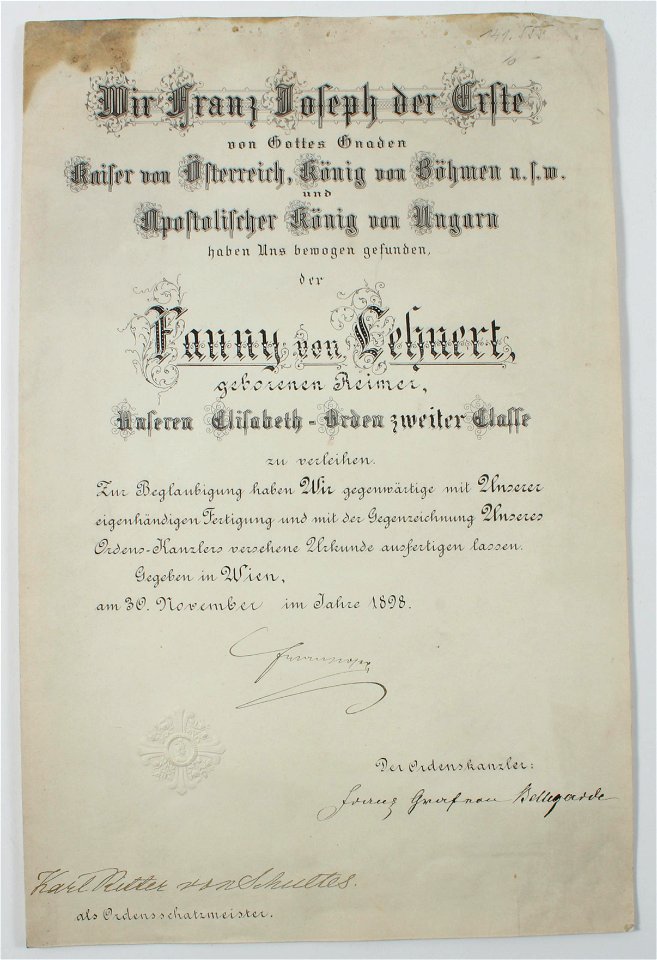 141.555
Wir Franz Joseph der Erste
von Gottes Gnaden
Kaiser von Österreich, König von Böhmen u.s.w.
und
Apostolischer König von Ungarn
haben Uns bewogen gefunden,
der
Fanny von Lehnert,
geborenen Reimer,
Unseren Elisabeth-Orden zweiter Classe
zu verleihen.
Zur Beglaubigung haben Wir gegenwärtige mit Unserer
eigenhändigen Fertigung und mit der Gegenzeichnung Unseres
Ordens-Kanzlers versehene Urkunde ausfertigen lassen.
Gegeben in Wien,
am 30. November im Jahre 1898.
Der Ordenskanzler:
Franz Graf von Bellegarde
Karl Ritter von Schultes.
als Ordensschatzmeister.